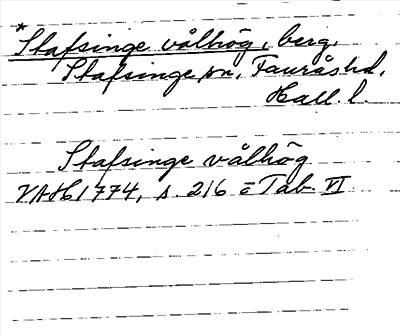 *Stafsinge vålhög, berg,
Stafsinge sn, Faurås hd,
Hall. l.
Stafsinge vålhög
VAH 1774, s. 216 = Tab. VI